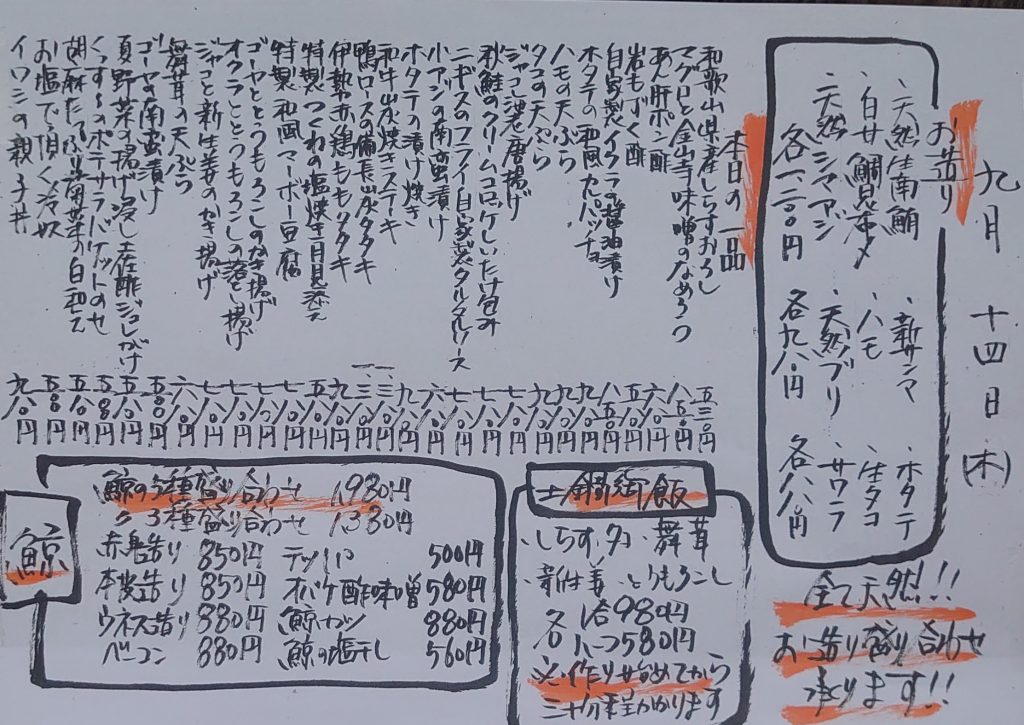 九月 十四日(木)
お造り
・天然生南鮪
・白甘鯛昆布〆
・天然シマアジ
各一、二〇〇円
・新サンマ
・ハモ
・天然ブリ
各九八〇円
・ホタテ
・生タコ
・サワラ
各八八〇円
全て天然!!
お造り盛り合わせ
承ります!!
本日の一品
和歌山県産しらすおろし 五三〇円
マグロと金山寺味噌のなめろう 八五〇円
あん肝ポン酢 六八〇円
岩もずく酢 五八〇円
自家製イクラ醤油漬け 八五〇円
ホタテの和風カルパッチョ 九八〇円
ハモの天ぷら 九八〇円
タコの天ぷら 九八〇円
ジャコ沼老唐揚げ 七八〇円
秋鮭のクリームコロッケしいたけ包み 七八〇円
ニギスのフライ自家製タルタルソース 七八〇円
小アジの南蛮漬け 六八〇円
ホタテの漬け焼き 九八〇円
和牛炭焼きステーキ
鴨ロースの備長炭タタキ
伊勢赤鶏ももタタキ 九八〇円
特製つくねの塩焼き月見添え 五八〇円
特製和風マーボー豆腐 七八〇円
ゴーヤととうもろこしのかき揚げ 七八〇円
オクラととうもろこしの落とし揚げ 七八〇円
ジャコと新生姜のかき揚げ 七八〇円
舞茸の天ぷら 六八〇円
ゴーヤの南蛮漬け 五〇〇円
夏野菜の揚げ冷し土佐酢ジュレがけ 五八〇円
くっすーのポテサラバゲットのせ 五五〇円
胡麻たっぷり菊菜の白和え 五八〇円
お塩で頂く冷奴 五〇〇円
イワシの親子丼 九八〇円
土鍋御飯
・しらす・タコ・舞茸
・新生姜・とうもろこし
各一合980円
ハーフ580円
※作り始めてから
三十分程かかります
鯨
鯨の5種盛り合わせ 1,980円
〃3種盛り合わせ 1380円
赤身造り 850円
本皮造り 850円
ウネス造り 880円
ベーコン 880円
テッパ 500円
オバケ酢味噌 580円
鯨カツ 880円
鯨の塩干し 560円